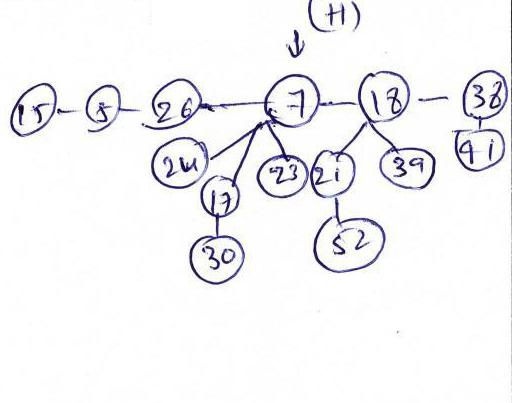 (H)
15 5 26 7 18 38
24 17 23 21 39 41
30 52